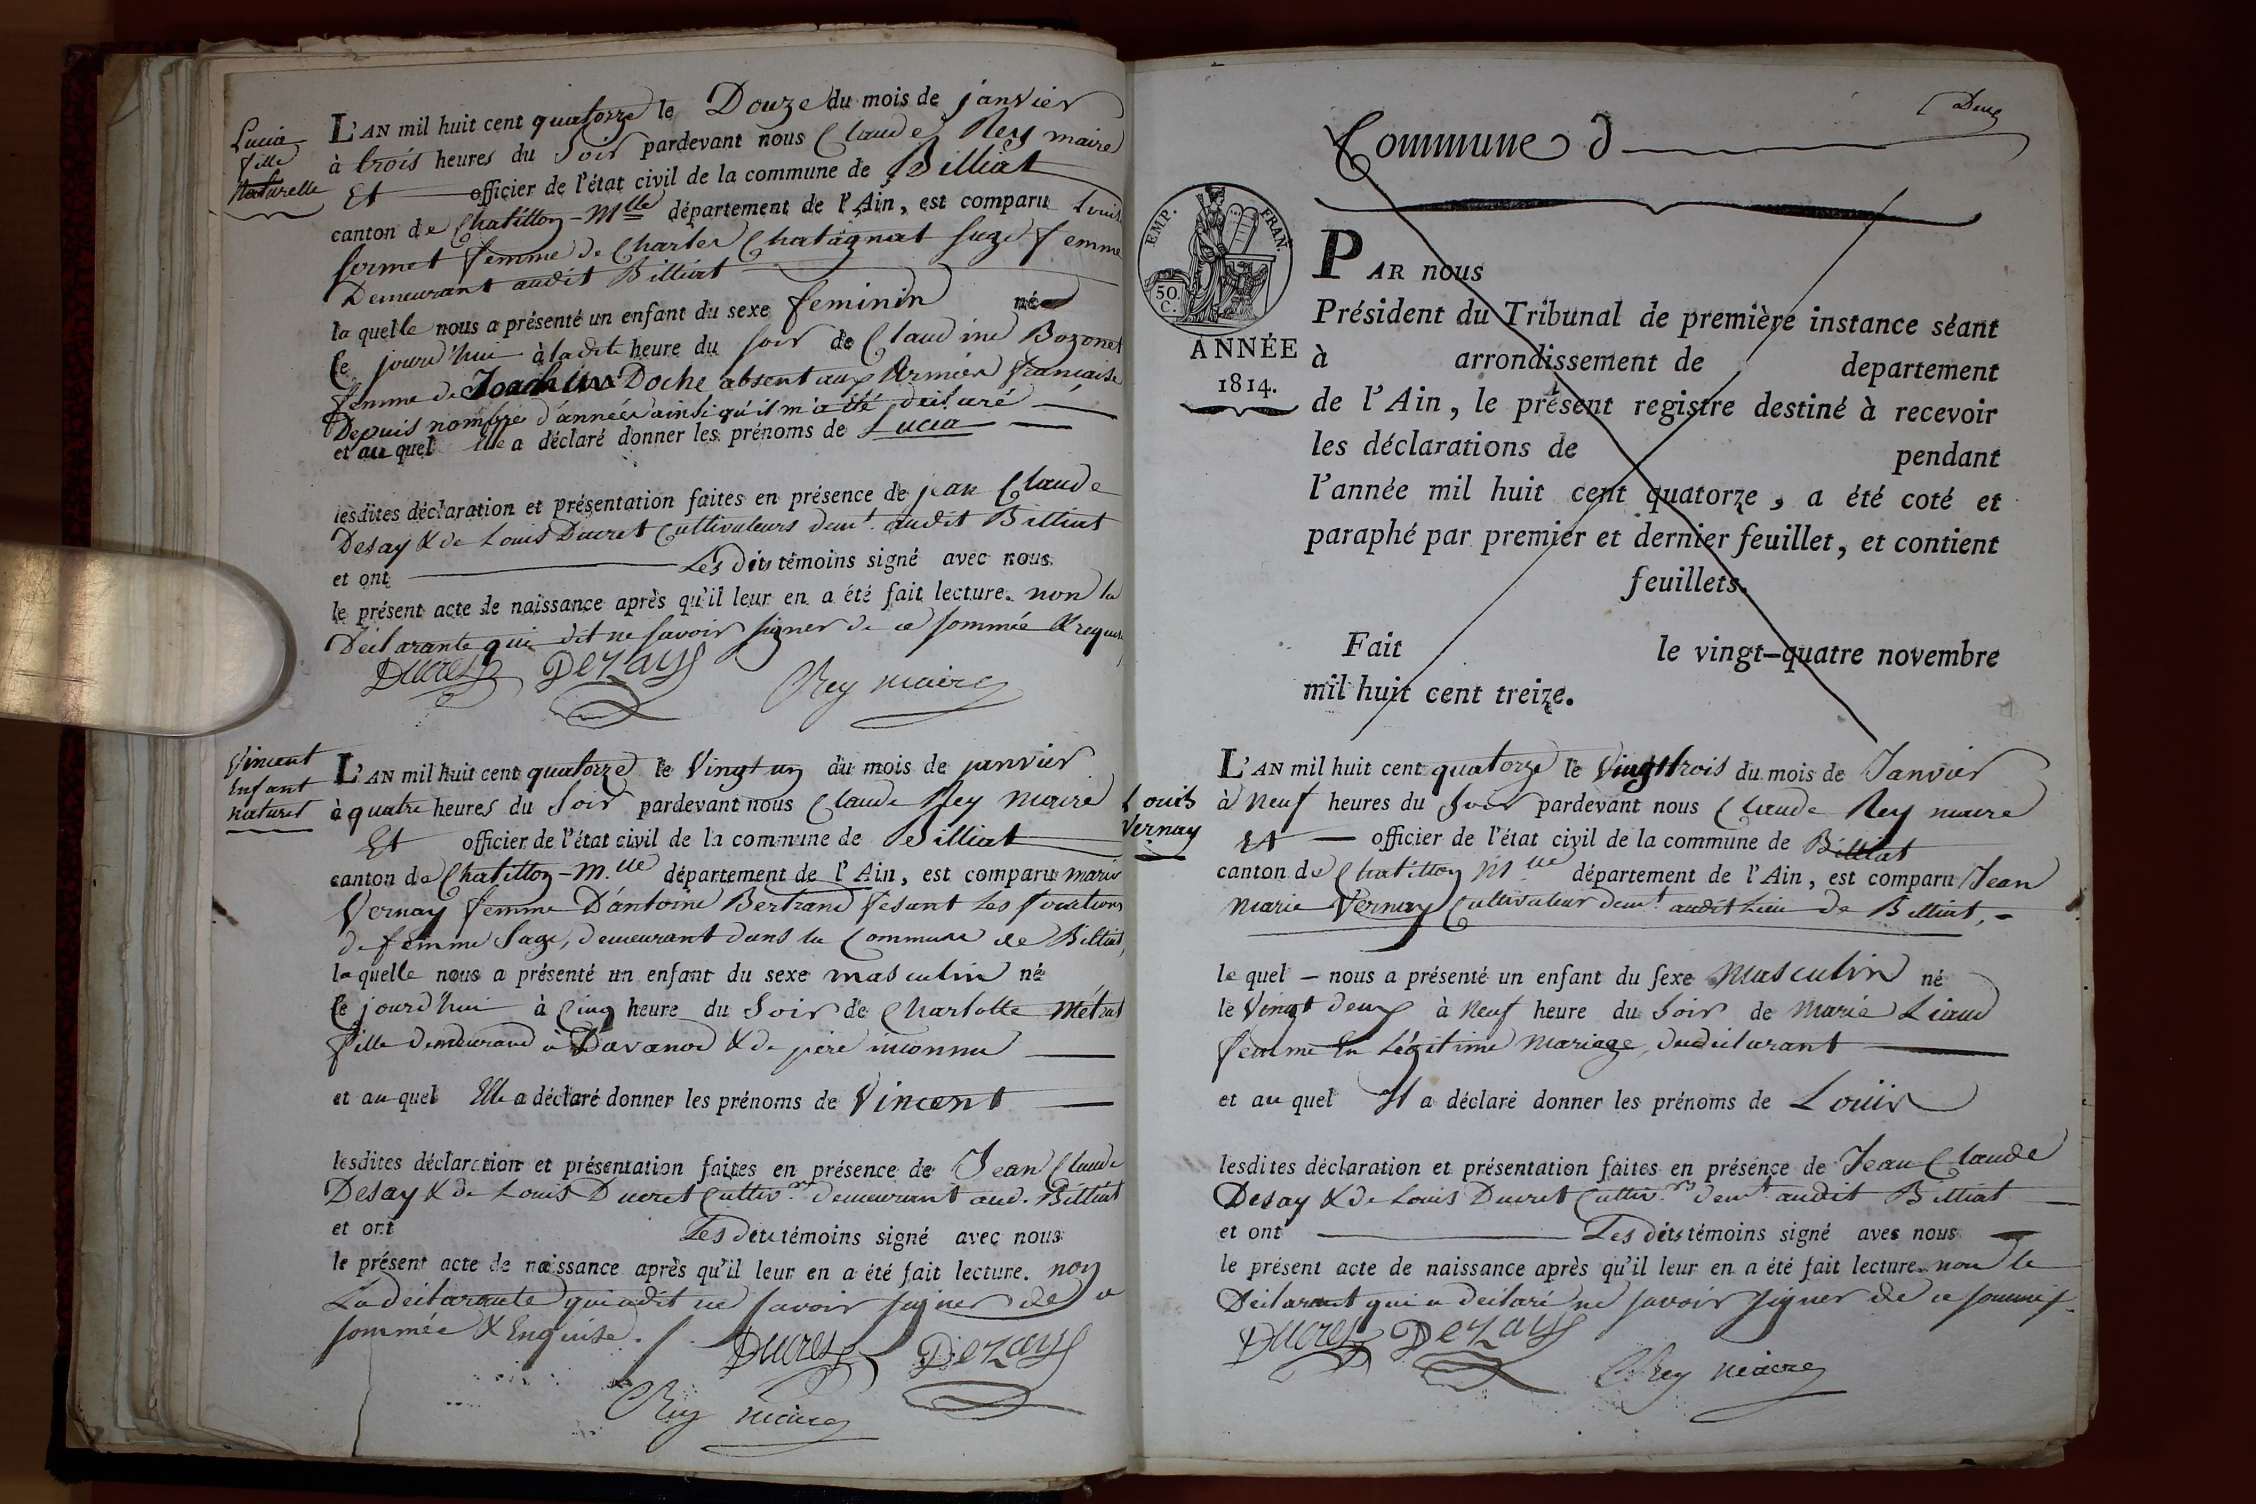 Lucia
fille
Naturelle
L'AN mil huit cent quatorze le Douze du mois de janvier
à trois heures du Soir pardevant nous Claude Rey maire
Et officier de l'état civil de la commune de Billiat
canton de Chatillon-Mlle département de l'Ain, est comparu Louise
sermet femme de Charles Chatagnat sage femme
Demeurant audit Billiat
la quelle nous a présenté un enfant du sexe feminin née
Ce jourd'hui à ladite heure du soir de Claudine Bozonet
femme de Joachim Doche absent aux Armées francaise
Depuis nombre d'années ainsi qu'il m'a été déclaré
et au quel elle a déclaré donner les prénoms de Lucia
lesdites déclaration et présentation faites en présence de jean Claude
Desay & de Louis Ducret Cultivateurs demt. audit Billiat
et ont Les dits témoins signé avec nous
le présent acte de naissance après qu'il leur en a été fait lecture. non la
Déclarante qui dit ne savoir signer de ce sommée & requise
Ducret Dezay Rey maire
Vincent
Enfant
naturel
L'AN mil huit cent quatorze le Vingt un du mois de janvier
à quatre heures du Soir pardevant nous Claude Rey Maire
Et officier de l'état civil de la commune de Billiat
canton de Chatillon-M.lle département de l'Ain, est comparu marie
Vernay femme D'antoine Bertrand fesant les fonctions
de femme Sage, demeurant dans la Commune de Billiat,
la quelle nous a présenté un enfant du sexe masculin né
Ce jourd'hui à Cinq heure du Soir de Charlotte Métral
fille Demeurand à Davanod & de père inconnu
et au quel Elle a déclaré donner les prénoms de Vincent
lesdites déclaration et présentation faites en présence de Jean Claude
Desay & de Louis Ducret Cultiv.rs demeurant aud. Billiat
et ont Les dits témoins signé avec nous
le présent acte de naissance après qu'il leur en a été fait lecture. non
La déclarante qui a dit ne savoir signer de ce
sommée & Enquise.
Ducret Dezay
Rey maire
Deux
Commune d
EMP. FRAN.
50.
C.
ANNÉE
1814.
PAR nous
Président du Tribunal de première instance séant
à arrondissement de departement
de l'Ain, le présent registre destiné à recevoir
les déclarations de pendant
l'année mil huit cent quatorze, a été coté et
paraphé par premier et dernier feuillet, et contient
feuillets.
Fait le vingt-quatre novembre
mil huit cent treize.
Louis
Vernay
L'AN mil huit cent quatorze le Vingt trois du mois de Janvier
à Neuf heures du Soir pardevant nous Claude Rey maire
Et officier de l'état civil de la commune de Billiat
canton de Chatillon Mlle département de l'Ain, est comparu Jean
Marie Vernay Cultivateur demt. audit Lieu de Billiat,
le quel nous a présenté un enfant du sexe Masculin né
le Vingt deux à Neuf heure du Soir de Marie Liaud
femme En Légitime Mariage, du déclarant
et au quel Il a déclaré donner les prénoms de Louis
lesdites déclaration et présentation faites en présence de Jean Claude
Desay & de Louis Ducret Cultiv.rs demt. audit Billiat
et ont Les dits témoins signé avec nous
le présent acte de naissance après qu'il leur en a été fait lecture. non le
Déclarant qui a déclaré ne savoir signer de ce sommé
Ducret Dezay
Rey maire